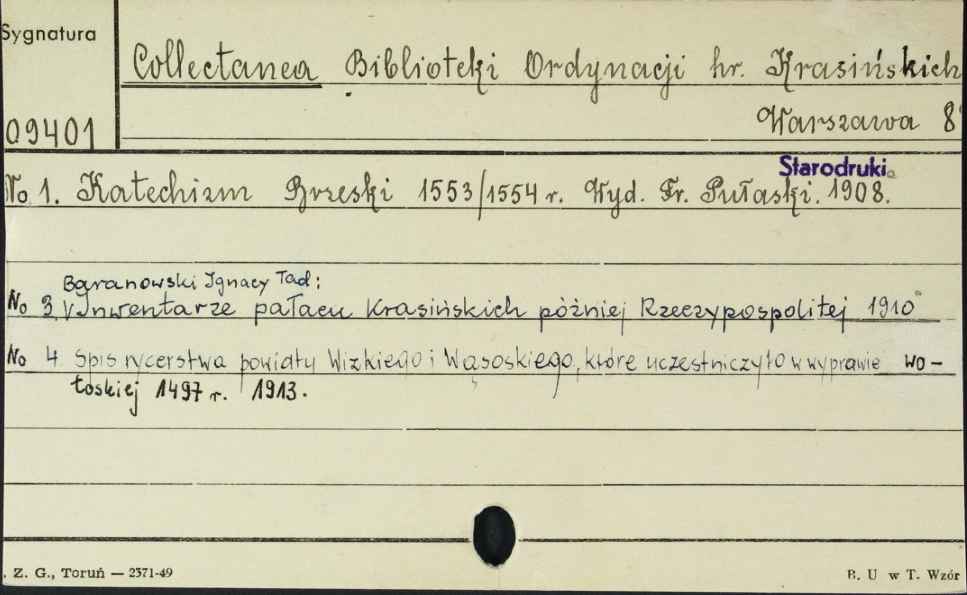 Sygnatura
Collectanea Biblioteki Ordynacji hr. Krasińskich
Warszawa 8°
09401
Starodruki
No 1. Katechizm Brzeski 1553/1554 r. Wyd. Fr. Pułaski. 1908.
Baranowski Ignacy Tad:
No 3 Inwentarze pałacu Krasińskich później Rzeczypospolitej 1910
No 4 Spis rycerstwa powiatu Wizkiego i Wąsoskiego, które uczestniczyło w wyprawie wo-
łoskiej 1497 r. 1913.
. Z. G., Toruń — 2371-49
B. U w T. Wzór